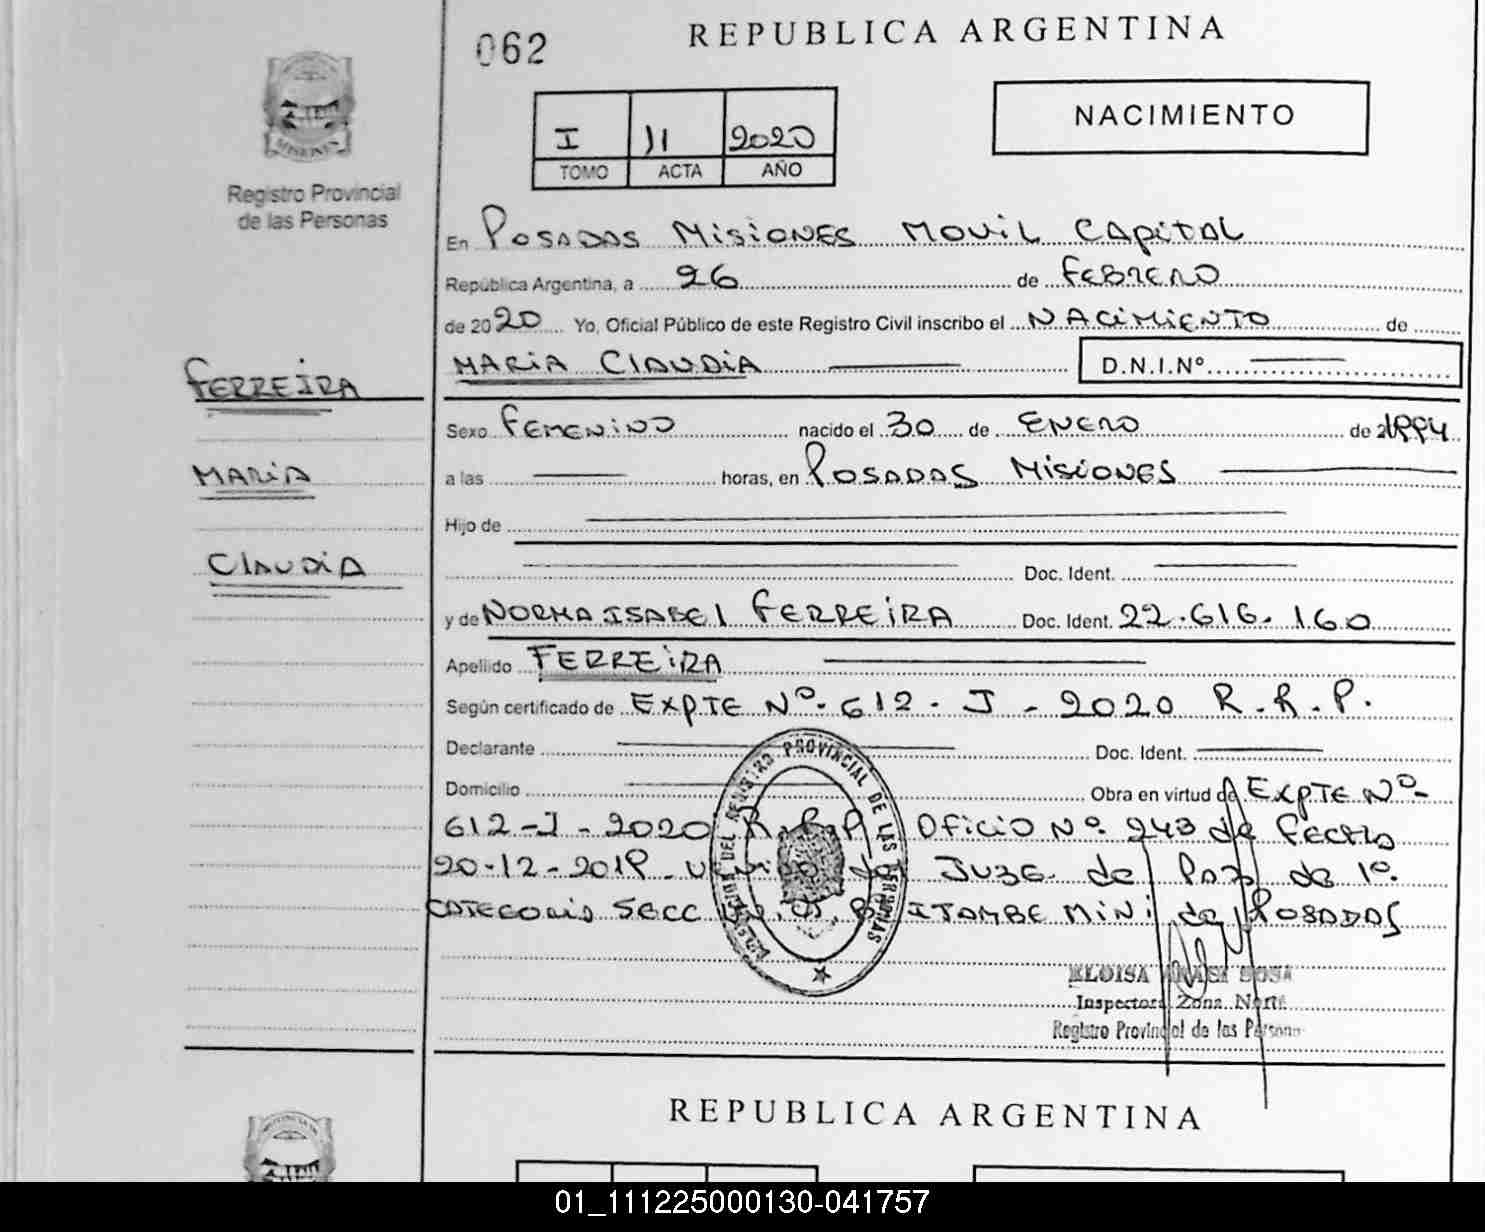 062
REPUBLICA ARGENTINA
NACIMIENTO
I 11 2020
TOMO ACTA AÑO
MISIONES
Registro Provincial
de las Personas
En POSADAS MISIONES MOVIL CAPITAL
República Argentina, a 26 de FEBRERO
de 2020 Yo, Oficial Público de este Registro Civil inscribo el NACIMIENTO de
MARIA CLAUDIA D.N.I.Nº
FERREIRA
Sexo FEMENINO nacido el 30 de ENERO de 1994
MARIA
a las horas, en POSADAS MISIONES
Hijo de
CLAUDIA
Doc. Ident.
y de NORMA ISABEL FERREIRA Doc. Ident. 22.616.160
Apellido FERREIRA
Según certificado de EXPTE Nº 612 - J - 2020 R.R.P.
Declarante Doc. Ident.
Domicilio Obra en virtud de EXPTE Nº
612-J-2020 R.R.P. Oficio Nº 243 de fecha
20-12-2019 del JUZG. de PAZ de 1º
CATEGORIA SECC ITAMBE MINI de POSADAS
REGISTRO PROVINCIAL DE LAS PERSONAS
ELOISA SOSA
Inspectora Zona Norte
Registro Provincial de las Persona
REPUBLICA ARGENTINA
01_111225000130-041757